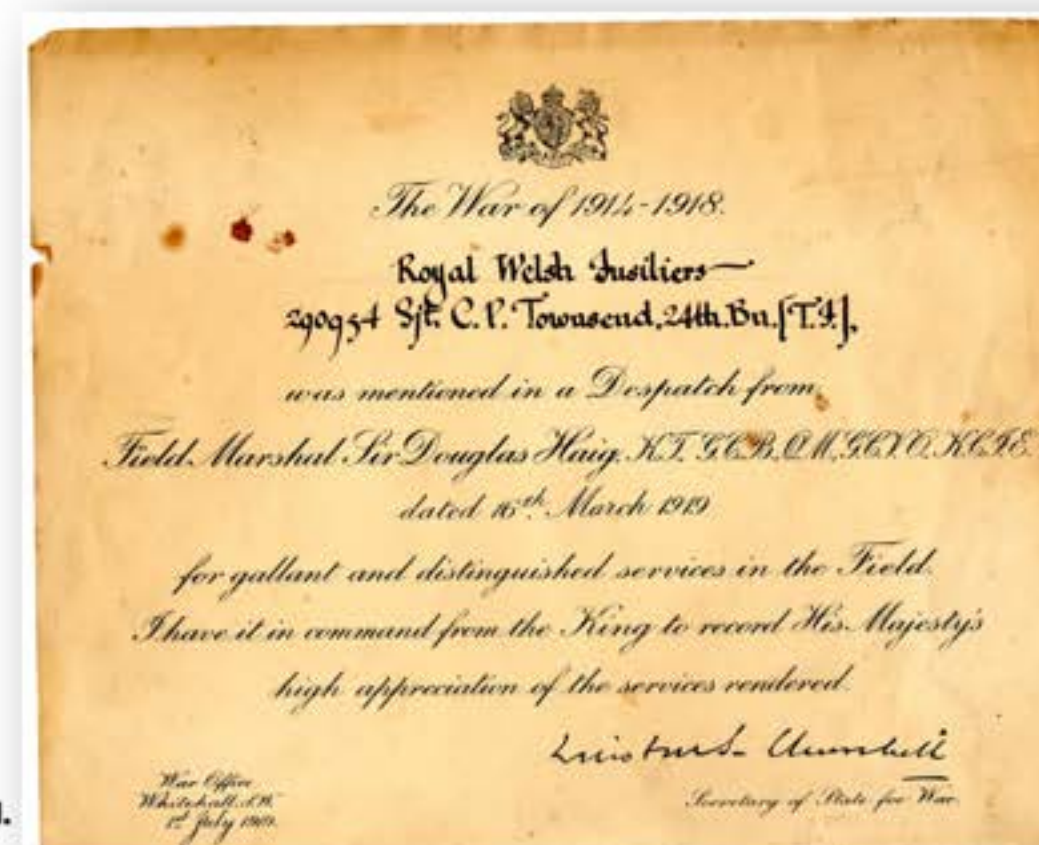 The War of 1914-1918.
Royal Welsh Fusiliers
290954 Sjt. C. P. Townsend, 24th. Bn. [T.F.],
was mentioned in a Despatch from
Field Marshal Sir Douglas Haig, K.T. G.C.B. O.M. G.C.V.O. K.C.I.E.
dated 16th March 1919
for gallant and distinguished services in the Field.
I have it in command from the King to record His Majesty's
high appreciation of the services rendered.
Winston S. Churchill
Secretary of State for War.
War Office
Whitehall. S.W.
1st July 1919.